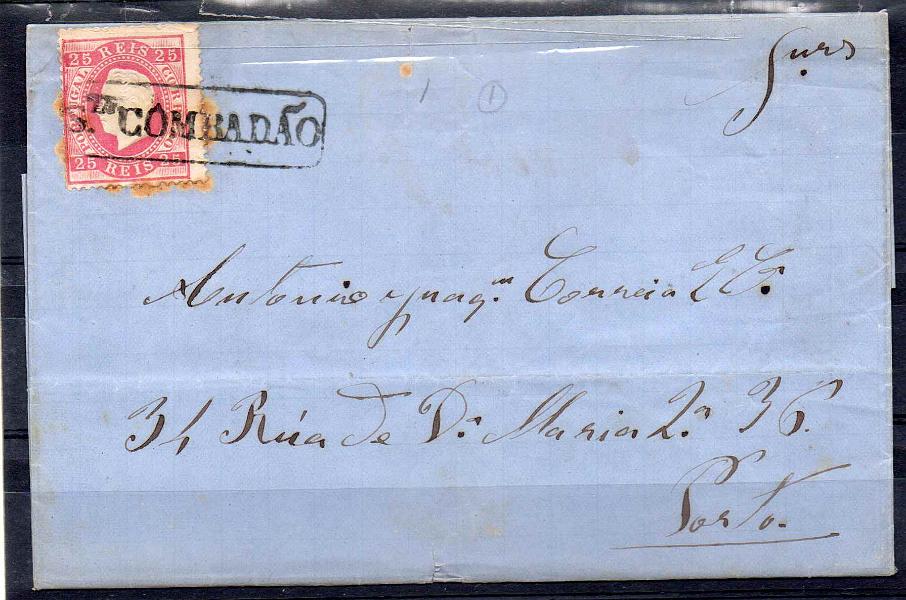 25 REIS 25
PORTUGAL
CORREIO
25 REIS 25
S.TA COMBADÃO
1 1
Snrs
Antonio Joaq.m Correia & C.ª
34 Rúa de D.ª Maria 2.ª 36.
Porto.